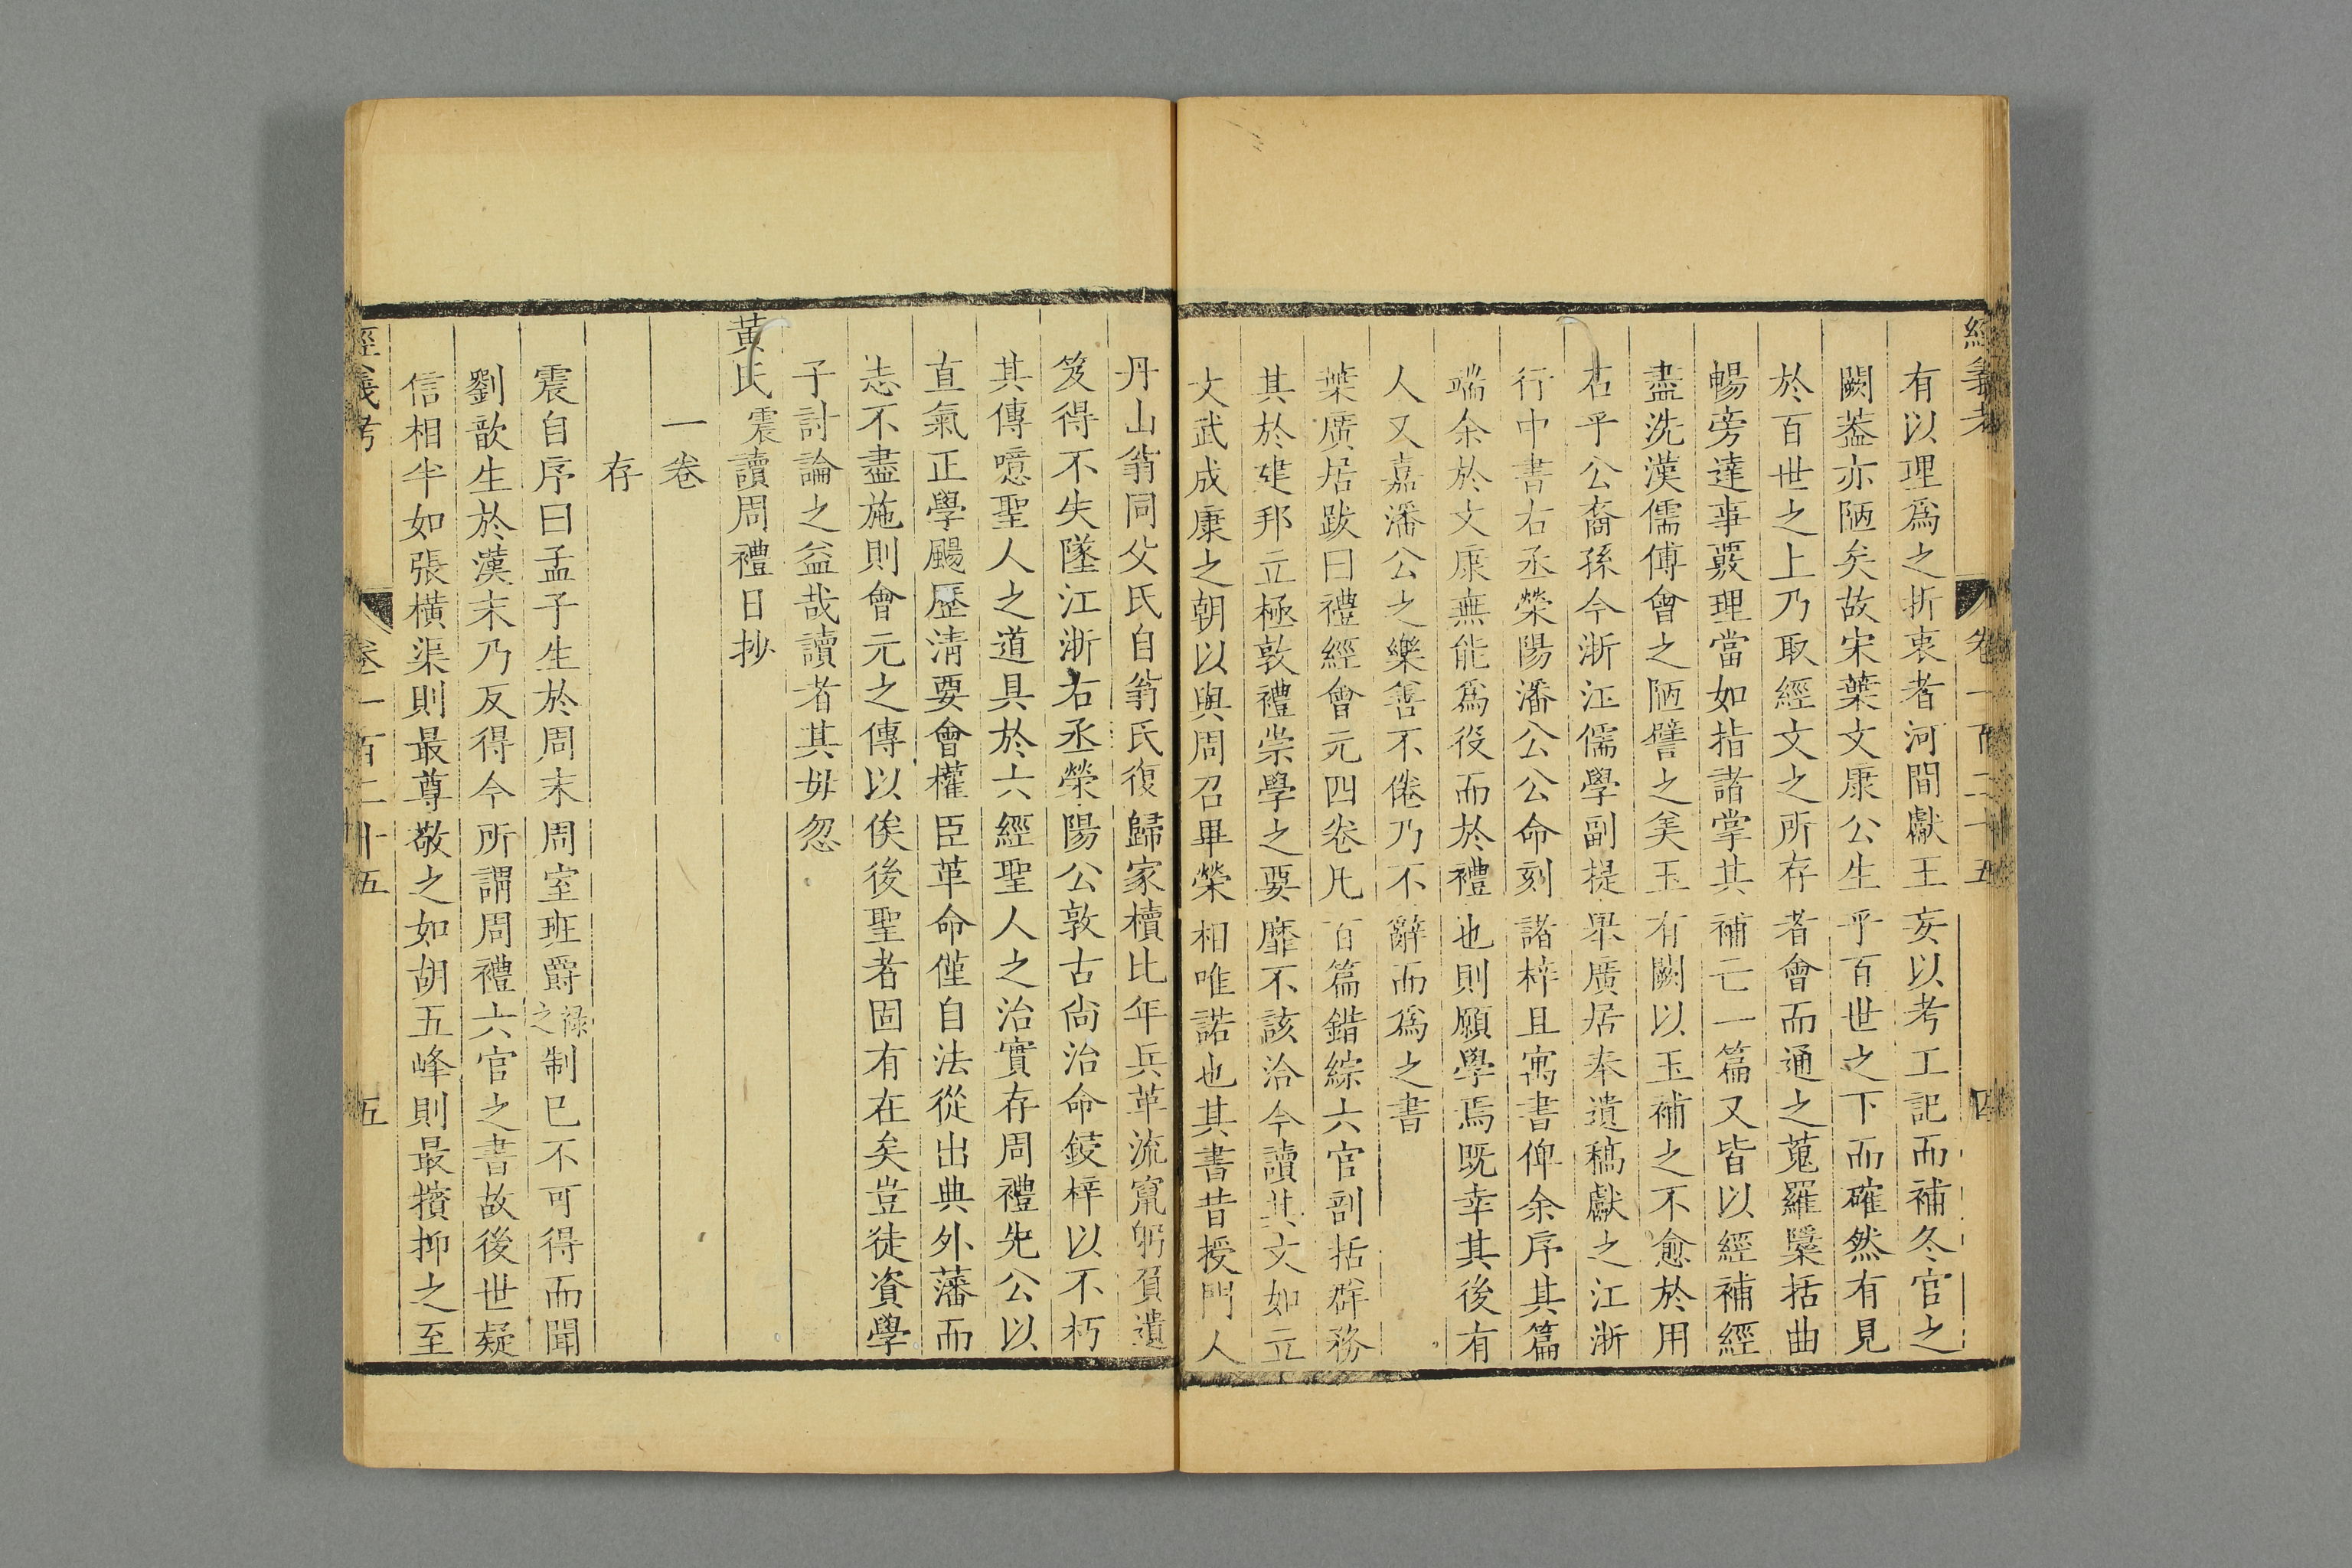 經義考 卷一百二十五 四
有以理爲之折衷者河間獻王妄以考工記而補冬官之
闕葢亦陋矣故宋葉文康公生乎百世之下而確然有見
於百世之上乃取經文之所存者會而通之蒐羅檃括曲
暢旁達事覈理當如指諸掌其補亡一篇又皆以經補經
盡洗漢儒傅會之陋譬之美玉有闕以玉補之不愈於用
石乎公裔孫今浙江儒學副提舉廣居奉遺稿獻之江浙
行中書右丞榮陽潘公公命刻諸梓且寓書俾余序其篇
端余於文康無能爲役而於禮也則願學焉旣幸其後有
人又嘉潘公之樂善不倦乃不辭而爲之書
葉廣居跋曰禮經會元四卷凡百篇錯綜六官剖括群務
其於建邦立極敦禮崇學之要靡不該洽今讀其文如立
文武成康之朝以與周召畢榮相唯諾也其書昔授門人
丹山翁同父氏自翁氏復歸家櫝比年兵革流竄躬負遺
笈得不失墜江浙右丞榮陽公敦古尙治命鋟梓以不朽
其傳噫聖人之道具於六經聖人之治實存周禮先公以
直氣正學颺歷淸要會權臣革命僅自法從出典外藩而
志不盡施則會元之傳以俟後聖者固有在矣豈徒資學
子討論之益哉讀者其毋忽
黃氏震讀周禮日抄
一卷
存
震自序曰孟子生於周末周室班爵祿之制已不可得而聞
劉歆生於漢末乃反得今所謂周禮六官之書故後世疑
信相半如張橫渠則最尊敬之如胡五峰則最擯抑之至
經義考 卷一百二十五 五